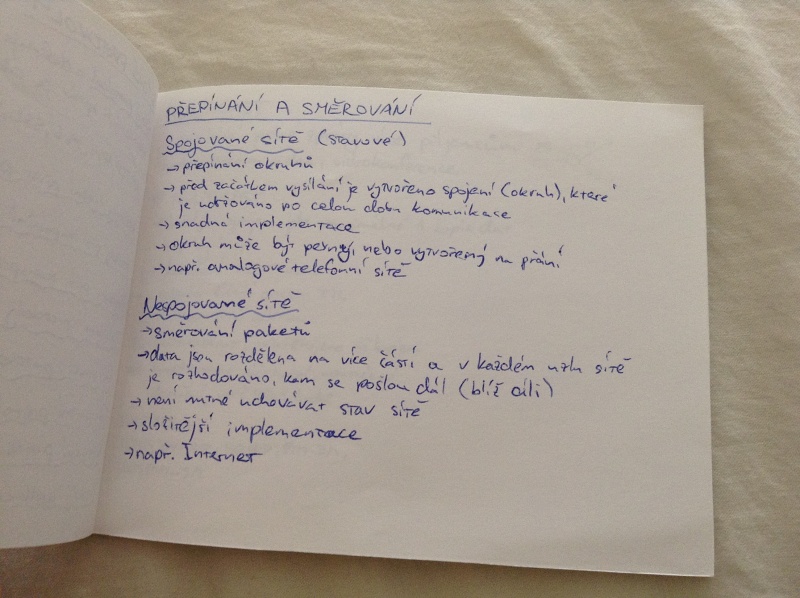 PŘEPÍNÁNÍ A SMĚROVÁNÍ
Spojované sítě (stavové)
→ přepínání okruhů
→ před začátkem vysílání je vytvořeno spojení (okruh), které
je udržováno po celou dobu komunikace
→ snadná implementace
→ okruh může být pevný, nebo vytvořený na přání
→ např. analogové telefonní sítě
Nespojované sítě
→ směrování paketů
→ data jsou rozdělena na více částí a v každém uzlu sítě
je rozhodováno, kam se pošlou dál (blíž cíli)
→ není nutné uchovávat stav sítě
→ složitější implementace
→ např. Internet